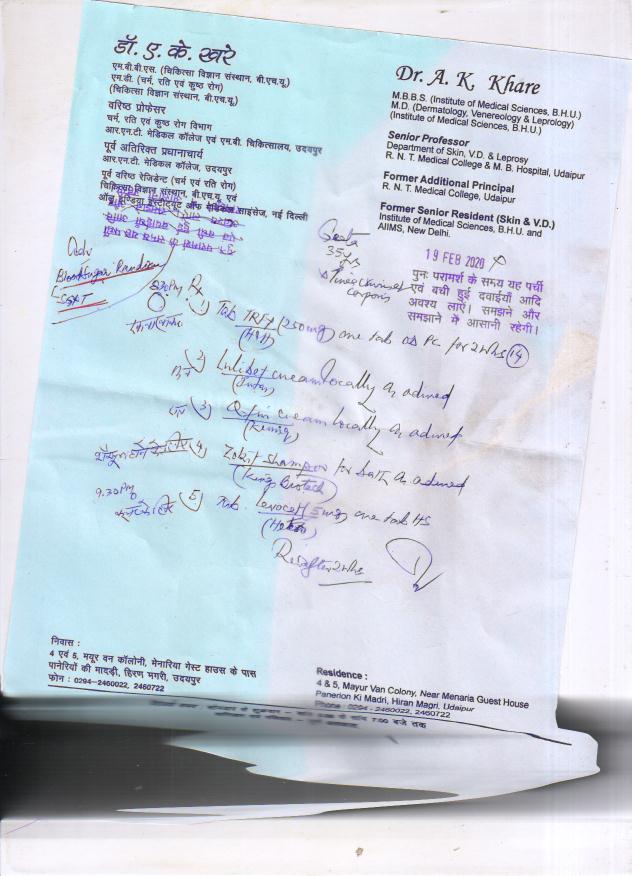 डॉ. ए. के. खरे
एम.बी.बी.एस. (चिकित्सा विज्ञान संस्थान, बी.एच.यू.)
एम.डी. (चर्म, रति एवं कुष्ठ रोग)
(चिकित्सा विज्ञान संस्थान, बी.एच.यू.)
वरिष्ठ प्रोफेसर
चर्म, रति एवं कुष्ठ रोग विभाग
आर.एन.टी. मेडिकल कॉलेज एवं एम.बी. चिकित्सालय, उदयपुर
पूर्व अतिरिक्त प्रधानाचार्य
आर.एन.टी. मेडिकल कॉलेज, उदयपुर
पूर्व वरिष्ठ रेजिडेन्ट (चर्म एवं रति रोग)
चिकित्सा विज्ञान संस्थान, बी.एच.यू. एवं
ऑल इण्डिया इंस्टीट्यूट ऑफ मेडिकल साइंसेज, नई दिल्ली
Dr. A. K. Khare
M.B.B.S. (Institute of Medical Sciences, B.H.U.)
M.D. (Dermatology, Venereology & Leprology)
(Institute of Medical Sciences, B.H.U.)
Senior Professor
Department of Skin, V.D. & Leprosy
R. N. T. Medical College & M. B. Hospital, Udaipur
Former Additional Principal
R. N. T. Medical College, Udaipur
Former Senior Resident (Skin & V.D.)
Institute of Medical Sciences, B.H.U. and
AIIMS, New Delhi.
19 FEB 2020
पुनः परामर्श के समय यह पर्ची
एवं बची हुई दवाईयाँ आदि
अवश्य लाएं। समझने और
समझाने में आसानी रहेगी।
Adv
Blood Sugar Random
35 yrs
Rx
1) Tab (250mg) one tab OD PC for 2 wks (14)
2) cream locally as advised
3) cream locally as advised
4) shampoo for as advised
9.30 PM
5) Tab. Levocet (5mg) one tab HS
after 2 wks
निवास :
4 एवं 5, मयूर वन कॉलोनी, मेनारिया गेस्ट हाउस के पास
पानेरियों की मादड़ी, हिरण मगरी, उदयपुर
फोन : 0294-2460022, 2460722
Residence :
4 & 5, Mayur Van Colony, Near Menaria Guest House
Panerion Ki Madri, Hiran Magri, Udaipur
Phone : 0294 - 2460022, 2460722